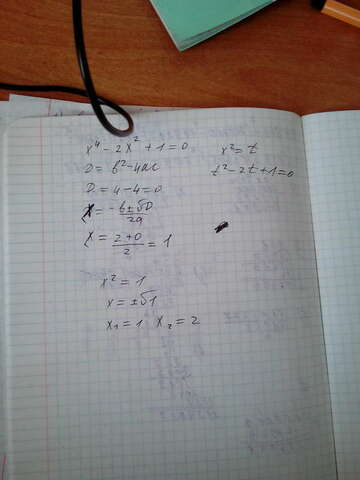 x⁴ - 2x² + 1 = 0
x² = t
D = b² - 4ac
t² - 2t + 1 = 0
D = 4 - 4 = 0
x = -b ± √D / 2a
x = 2 + 0 / 2 = 1
x² = 1
x = ±√1
x₁ = 1 x₂ = 2